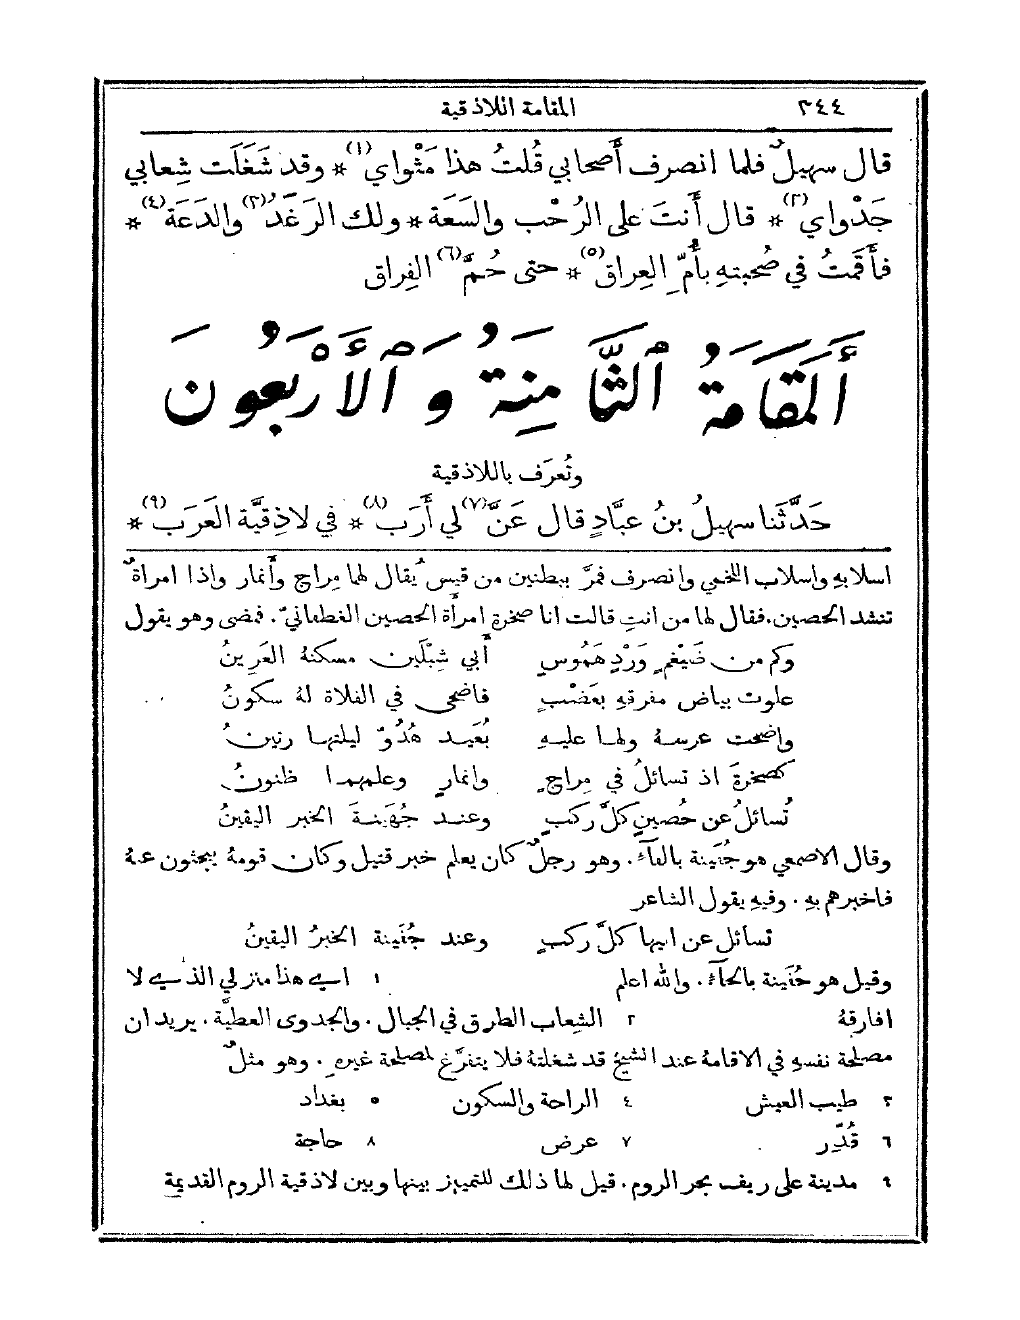 ٣٤٤ المقامة اللاذقية
قال سهيلٌ فلما انصرف أَصحابي قُلتُ هذا مَثْواي(١) * وقد شَغَلَت شِعابي
جَدْواي(٢) * قال أَنتَ على الرُحْب والسَعَة * ولك الرَغَدُ(٣) والدَعَة(٤) *
فأَقمتُ في صُحبتهِ بأُمِّ العِراق(٥) * حتى حُمَّ(٦) الفِراق
أَلمَقَامَةُ الثَّامِنَةُ وَالْأَرْبَعُونَ
وتُعرَف باللاذقية
حَدَّثَنا سهيلُ بنُ عبَّادٍ قال عَنَّ(٧) لي أَرَب(٨) * في لاذِقيَّة العَرَب(٩) *
اسلابهِ واسلاب اللخمي وانصرف فمرَّ ببطنين من قيس يُقال لها مِراج وأَنمار واذا امراةٌ
تنشد الحصين. فقال لها من انتِ قالت انا صخرة امرأَة الحصين الغطفانيّ. فمضى وهو يقول
وكم من ضَيْغمٍ وَرْدٍ هَمُوسٍ أبي شِبْلَين مسكنهُ العَرِينُ
علوت بياض مفرقهِ بعَضْبٍ فاضحى في الفلاة لهُ سكونُ
واضحت عرسهُ ولها عليهِ بُعَيد هُدُوّ ليلتها رنينُ
كصخرةَ اذ تسائلُ في مِراجٍ وانمارٍ وعلمهما ظنونُ
تُسائلُ عن حُصينٍ كلَّ ركبٍ وعند جُهَينةَ الخبر اليقينُ
وقال الاصمعي هو جُفَينة بالفآء. وهو رجلٌ كان يعلم خبر قتيل وكان قومهُ يبحثون عنهُ
فاخبرهم بهِ. وفيهِ يقول الشاعر
تسائل عن ابيها كلَّ ركبٍ وعند جُفَينة الخبرُ اليقينُ
وقيل هو حُفَينة بالحآء. والله اعلم ١ اي هذا منزلي الذي لا
افارقهُ ٢ الشِعاب الطرق في الجبال. والجدوى العطيَّة. يريد ان
مصلحة نفسهِ في الاقامة عند الشيخ قد شغلتهُ فلا يتفرَّغ لمصلحة غيرهِ. وهو مثلٌ
٣ طيب العيش ٤ الراحة والسكون ٥ بغداد
٦ قُدِّر ٧ عرض ٨ حاجة
٩ مدينة على ريف بحر الروم. قيل لها ذلك للتمييز بينها وبين لاذقية الروم القديمة